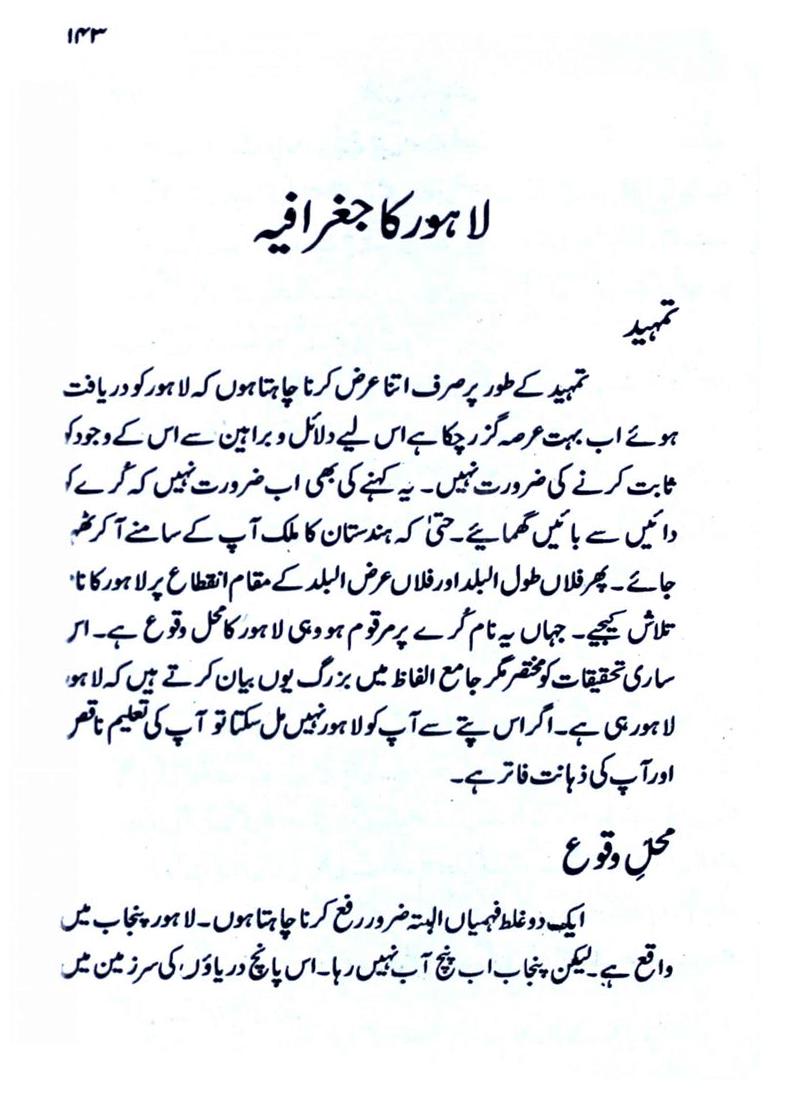 ۱۴۳
لاہور کا جغرافیہ
تمہید
تمہید کے طور پر صرف اتنا عرض کرنا چاہتا ہوں کہ لاہور کو دریافت
ہوئے اب بہت عرصہ گزر چکا ہے اس لیے دلائل و براہین سے اس کے وجود کو
ثابت کرنے کی ضرورت نہیں۔ یہ کہنے کی بھی اب ضرورت نہیں کہ کُرے کو
دائیں سے بائیں گھمائیے۔ حتیٰ کہ ہندستان کا ملک آپ کے سامنے آ کر
جائے۔ پھر فلاں طول البلد اور فلاں عرض البلد کے مقام انقطاع پر لاہور کا
تلاش کیجیے۔ جہاں یہ نام کُرے پر مرقوم ہو وہی لاہور کا محل وقوع ہے۔
ساری تحقیقات کو مختصر مگر جامع الفاظ میں بزرگ یوں بیان کرتے ہیں کہ لاہور
لاہور ہی ہے۔ اگر اس پتے سے آپ کو لاہور نہیں مل سکتا تو آپ کی تعلیم
اور آپ کی ذہانت فاتر ہے۔
محلِ وقوع
ایک دو غلط فہمیاں البتہ ضرور رفع کرنا چاہتا ہوں۔ لاہور پنجاب میں
واقع ہے۔ لیکن پنجاب اب پنج آب نہیں رہا۔ اس پانچ دریاؤں کی سرزمین میں